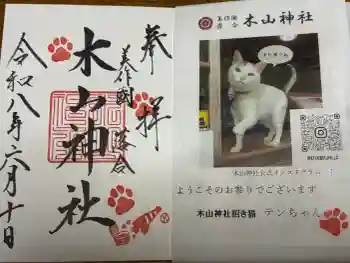 奉拝
美作國 落合
木山神社
令和八年六月十日
美作國
落合
木山神社
木山神社公式インスタグラム
ようこそのお参りでございます
木山神社招き猫 テンちゃん